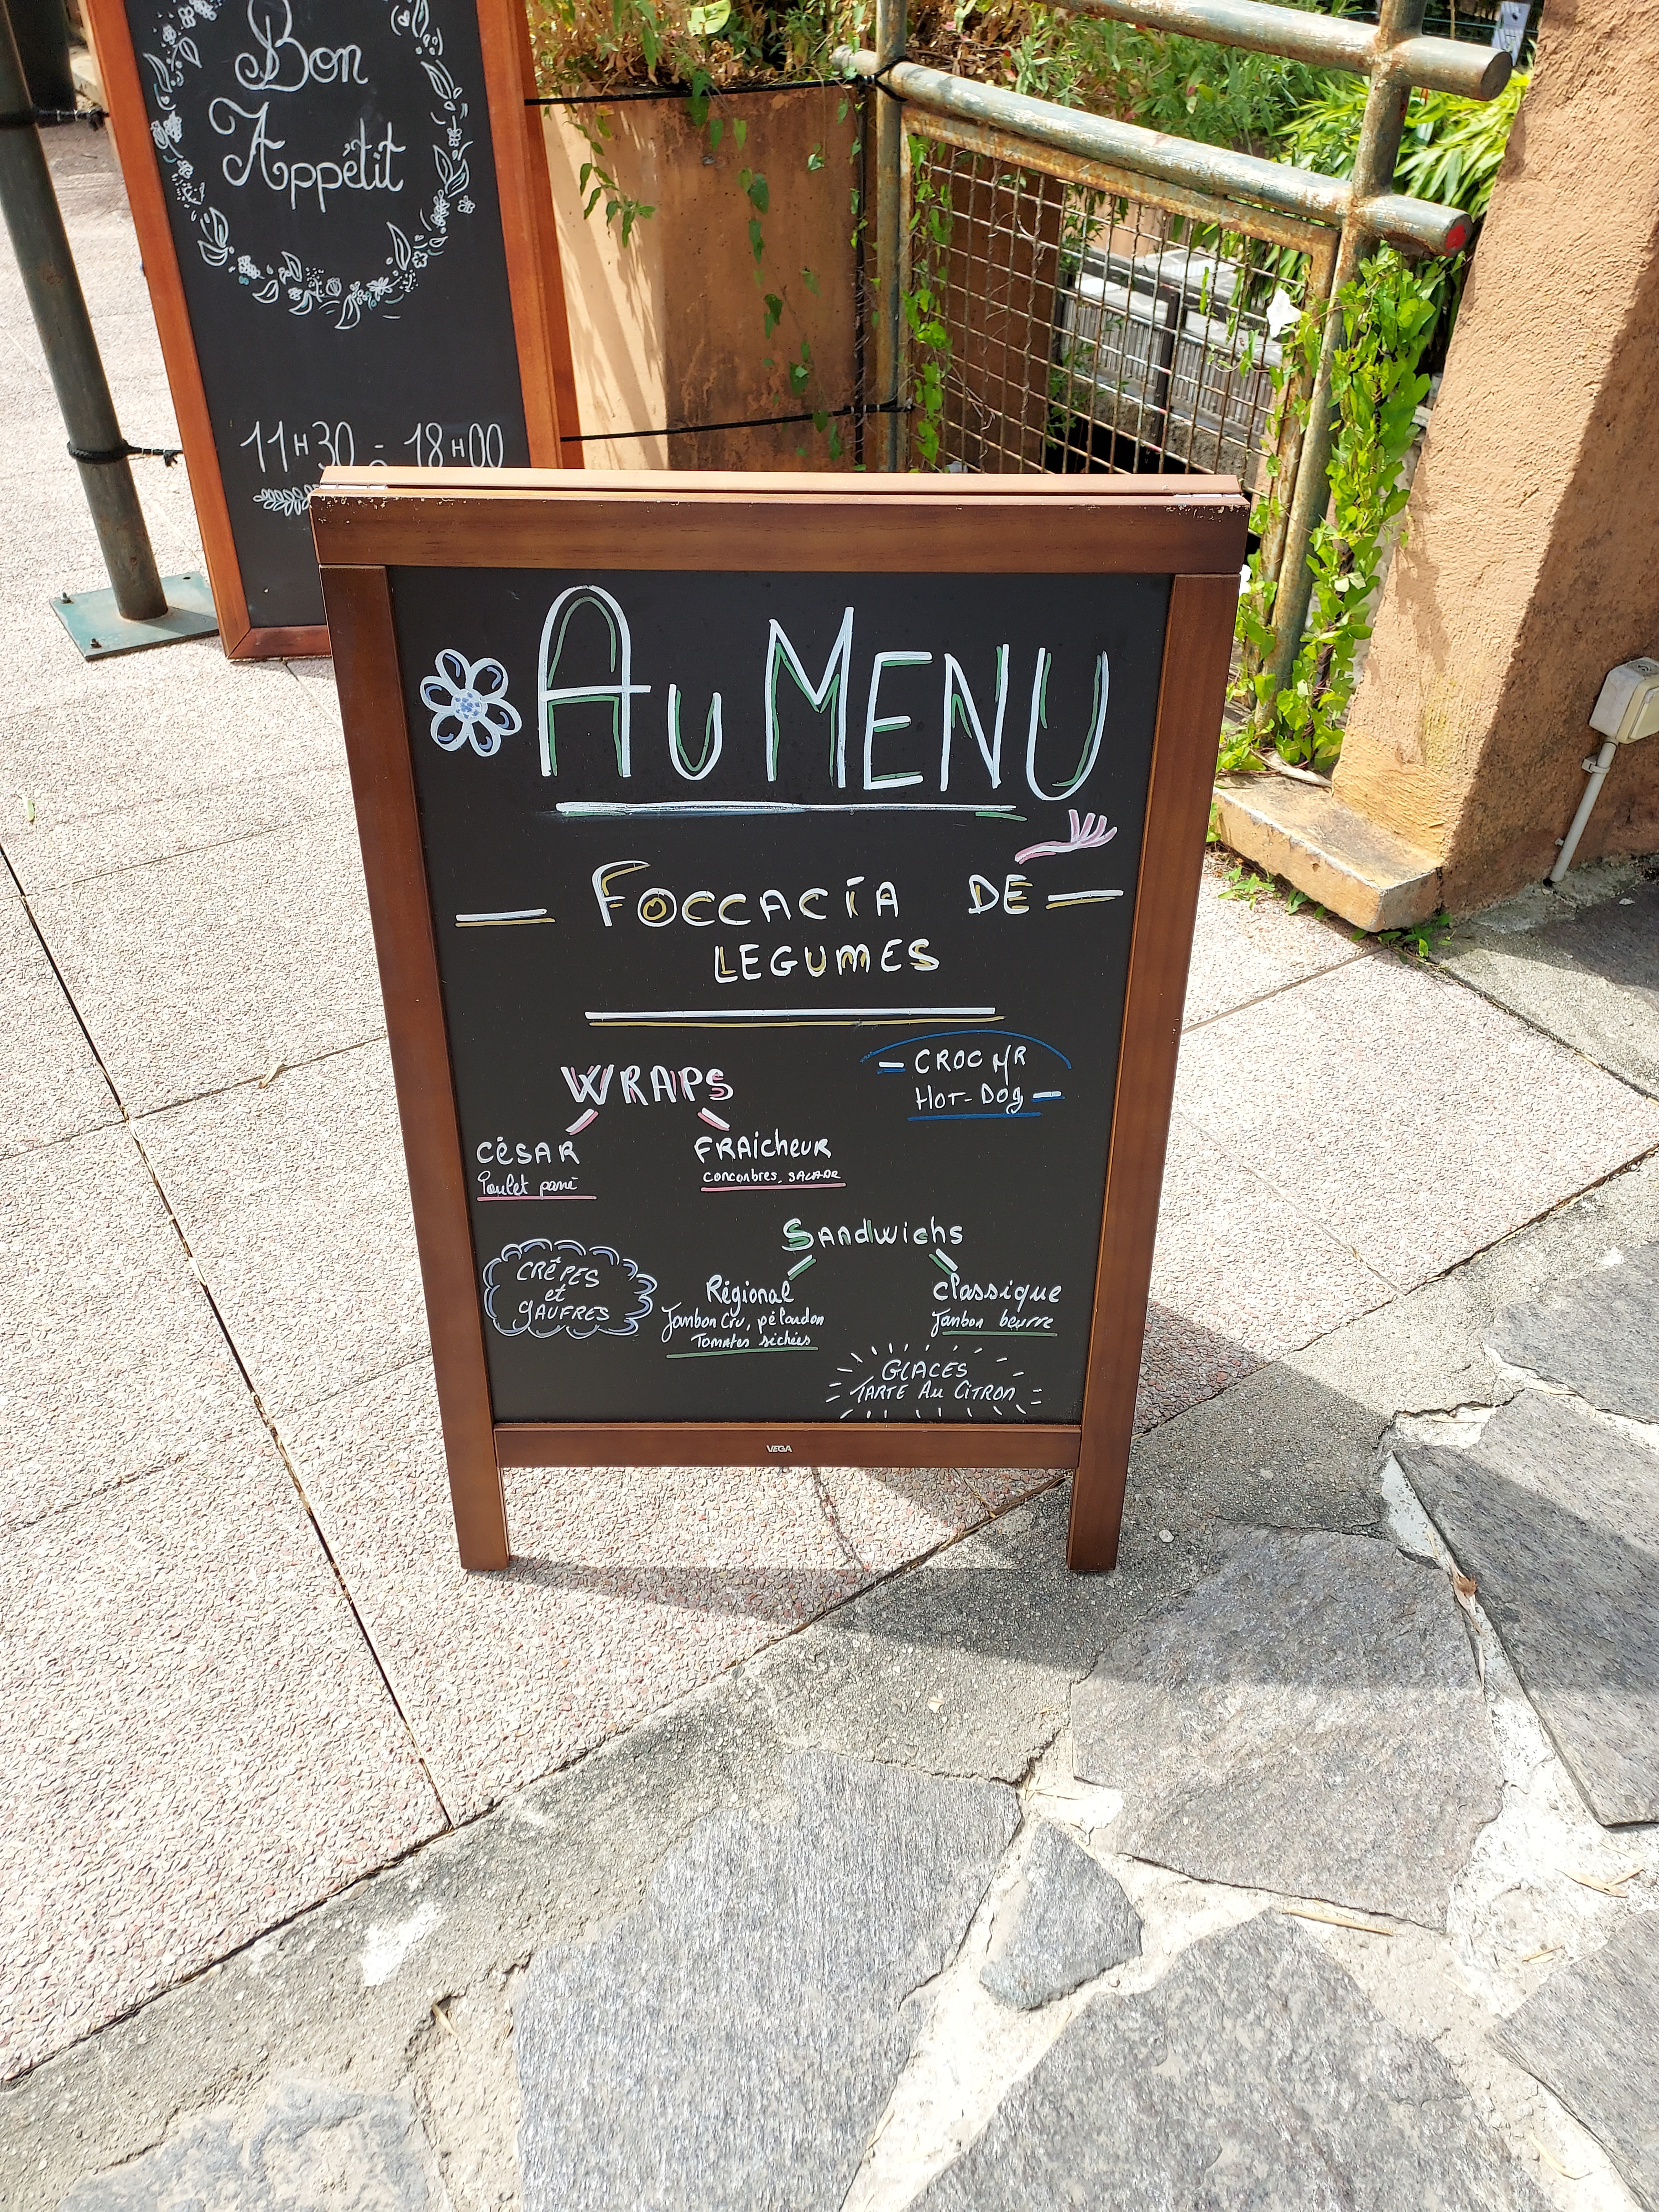 Bon
Appétit
11H30 - 18H00
Au MENU
FOCCACIA DE
LEGUMES
CROC MR
HOT-DOg
WRAPS
CÉSAR
Poulet pané
FRAicheuR
Concombres, SALADE
Sandwichs
CRÊPES
et
gAUFRES
Régional
Jambon Cru, pélardon
Tomates séchées
classique
Jambon beurre
GLACES
TARTE Au CiTRON
VEGA